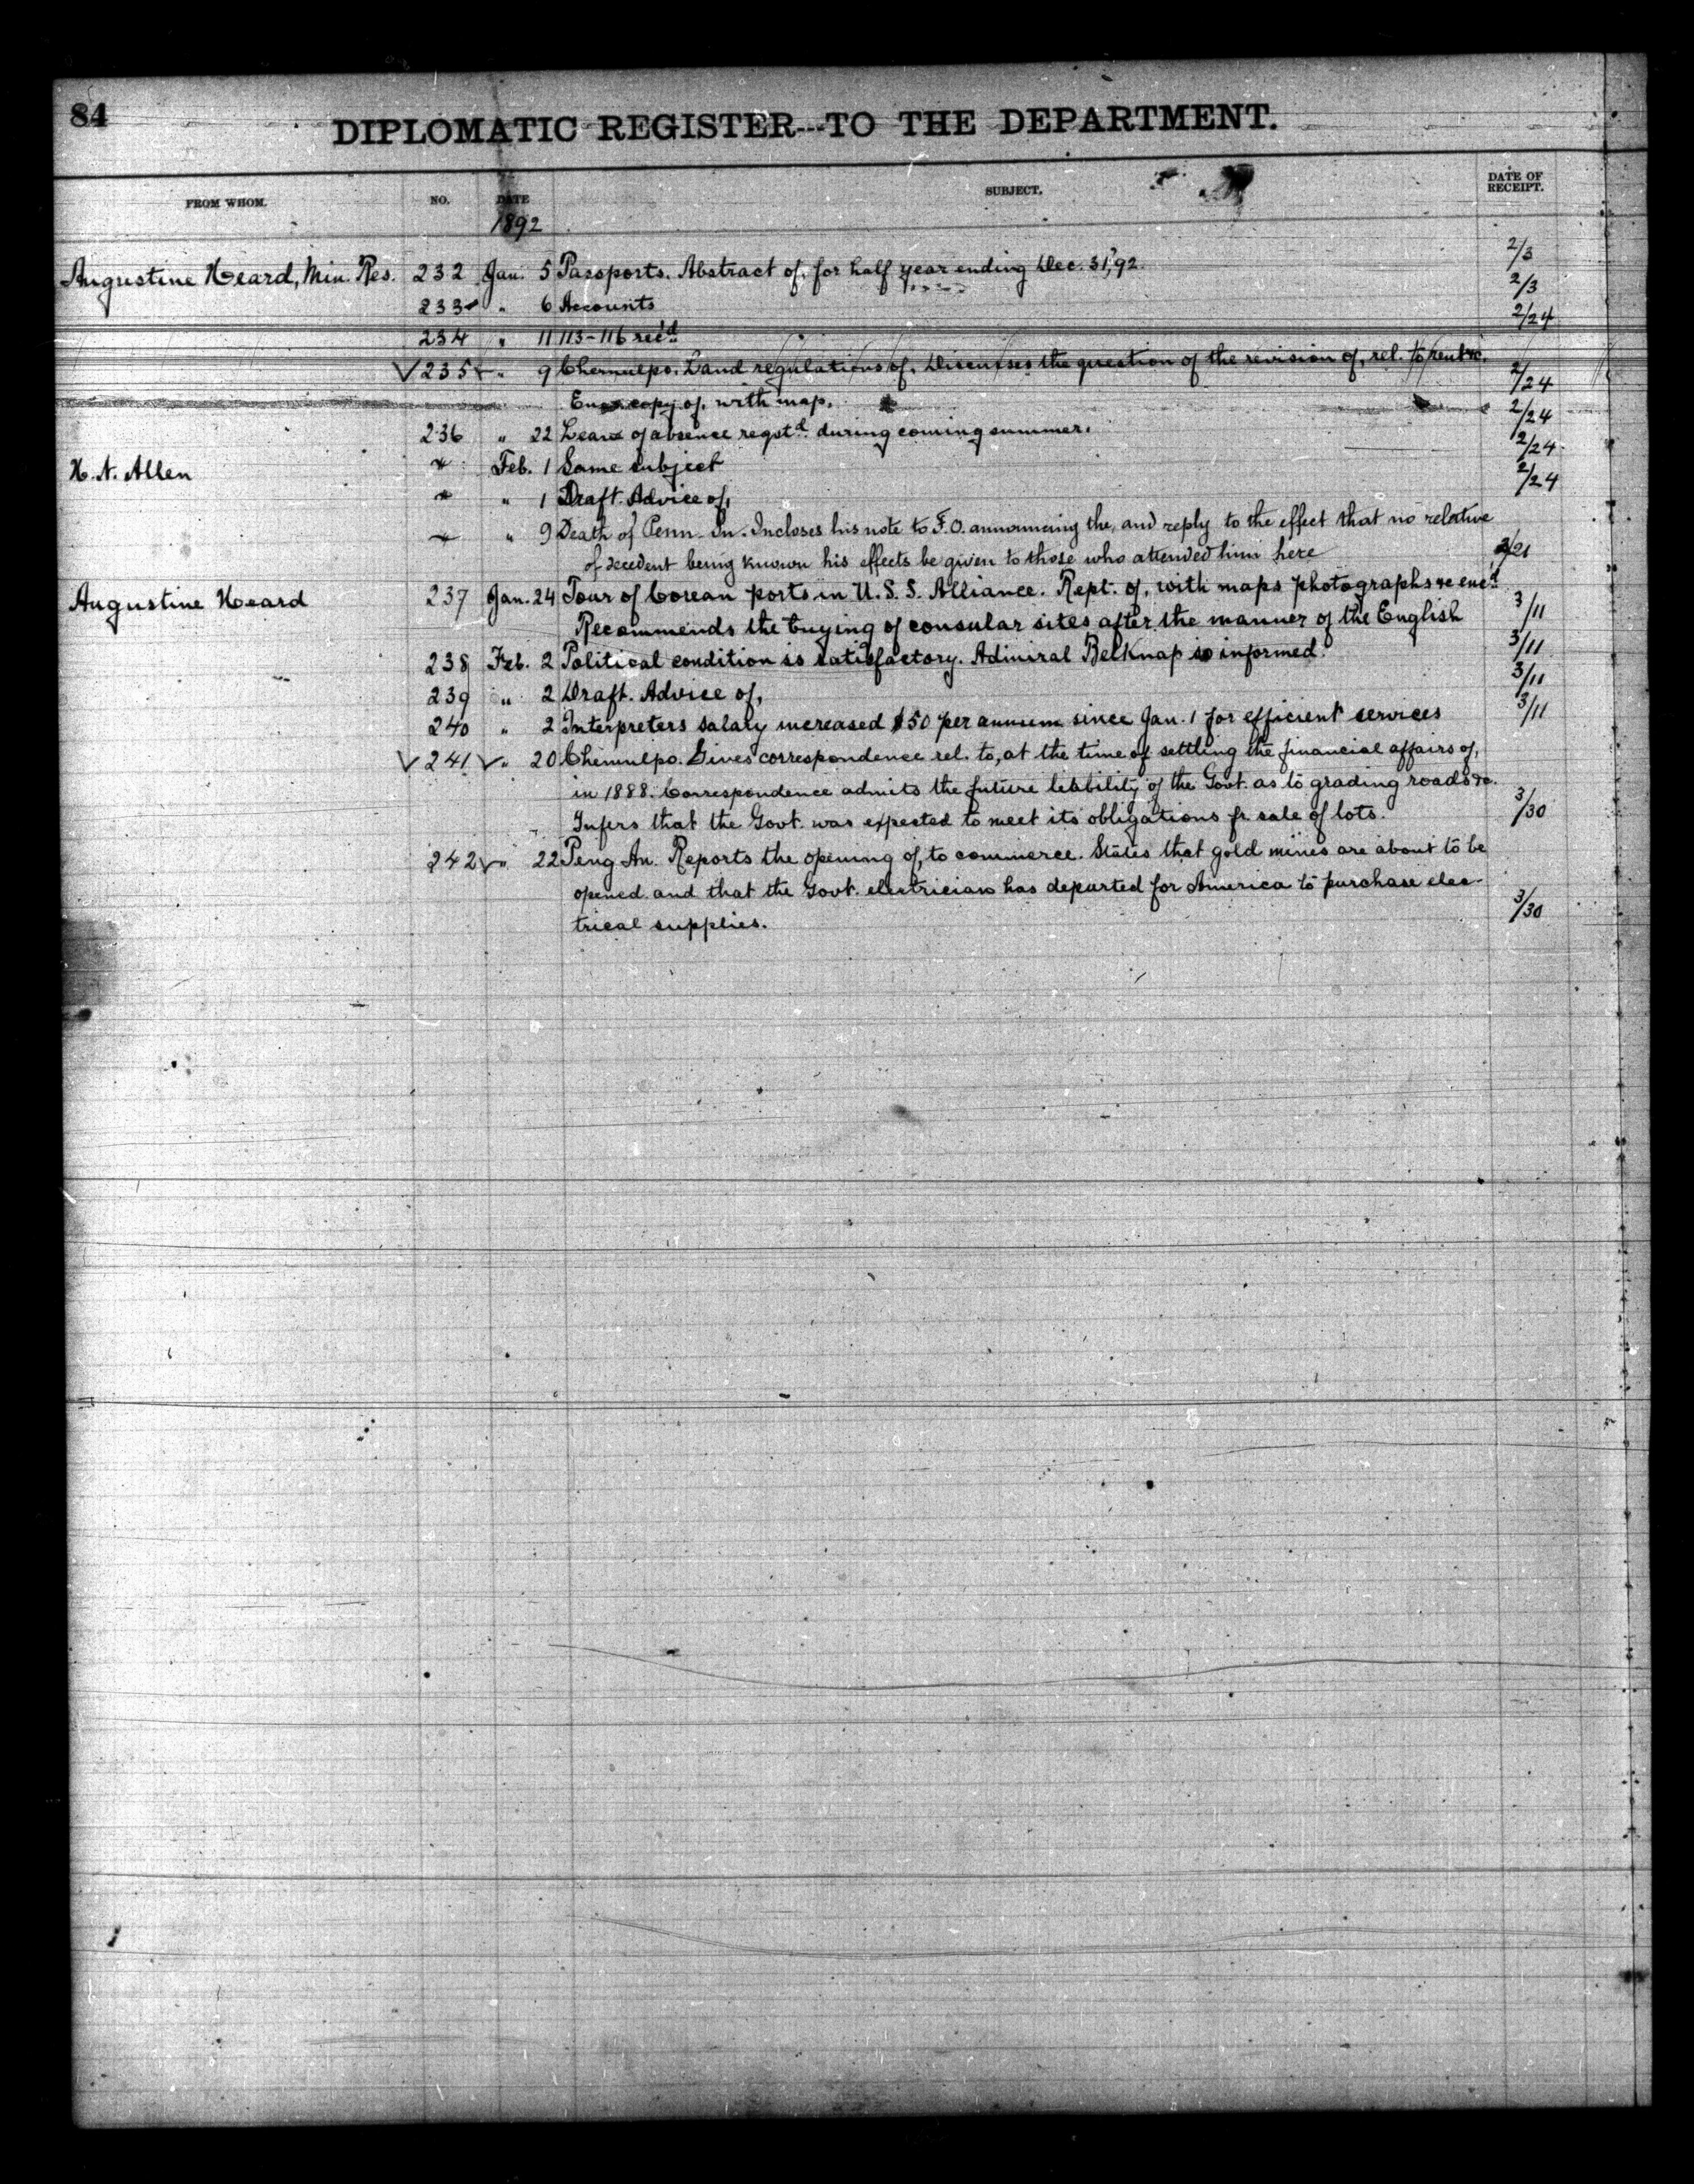 84
DIPLOMATIC REGISTER---TO THE DEPARTMENT.
FROM WHOM. NO. DATE SUBJECT. DATE OF RECEIPT.
1892
Augustine Heard, Min. Res. 232 Jan. 5 Passports. Abstract of, for half year ending Dec. 31, '92. 2/3
233 " 6 Accounts 2/3
234 " 11 113-116 rec'd 2/24
√ 235 " 9 Chemulpo. Land regulations of. Discusses the question of the revision of, rel. to rent &c.
copy of, with map. 2/24
236 " 22 Leave of absence reqst'd during coming summer. 2/24
H. N. Allen Feb. 1 Same subject 2/24
" 1 Draft. Advice of, 2/24
" 9 Death of Penn In. Incloses his note to F.O. announcing the, and reply to the effect that no relative
of decedent being known his effects be given to those who attended him here 3/21
Augustine Heard 237 Jan. 24 Tour of Corean ports in U. S. S. Alliance. Rept. of, with maps photographs &c enc'd
Recommends the buying of consular sites after the manner of the English 3/11
238 Feb. 2 Political condition is satisfactory. Admiral Belknap so informed. 3/11
239 " 2 Draft. Advice of, 3/11
240 " 2 Interpreters salary increased $50 per annum since Jan. 1 for efficient services 3/11
√ 241 √ " 20 Chemulpo. Gives correspondence rel. to, at the time of settling the financial affairs of,
in 1888. Correspondence admits the future liability of the Govt. as to grading roads &c.
Infers that the Govt. was expected to meet its obligations fr. sale of lots. 3/30
242 √ " 22 Peng An. Reports the opening of, to commerce. States that gold mines are about to be
opened and that the Govt. electrician has departed for America to purchase elec-
trical supplies. 3/30